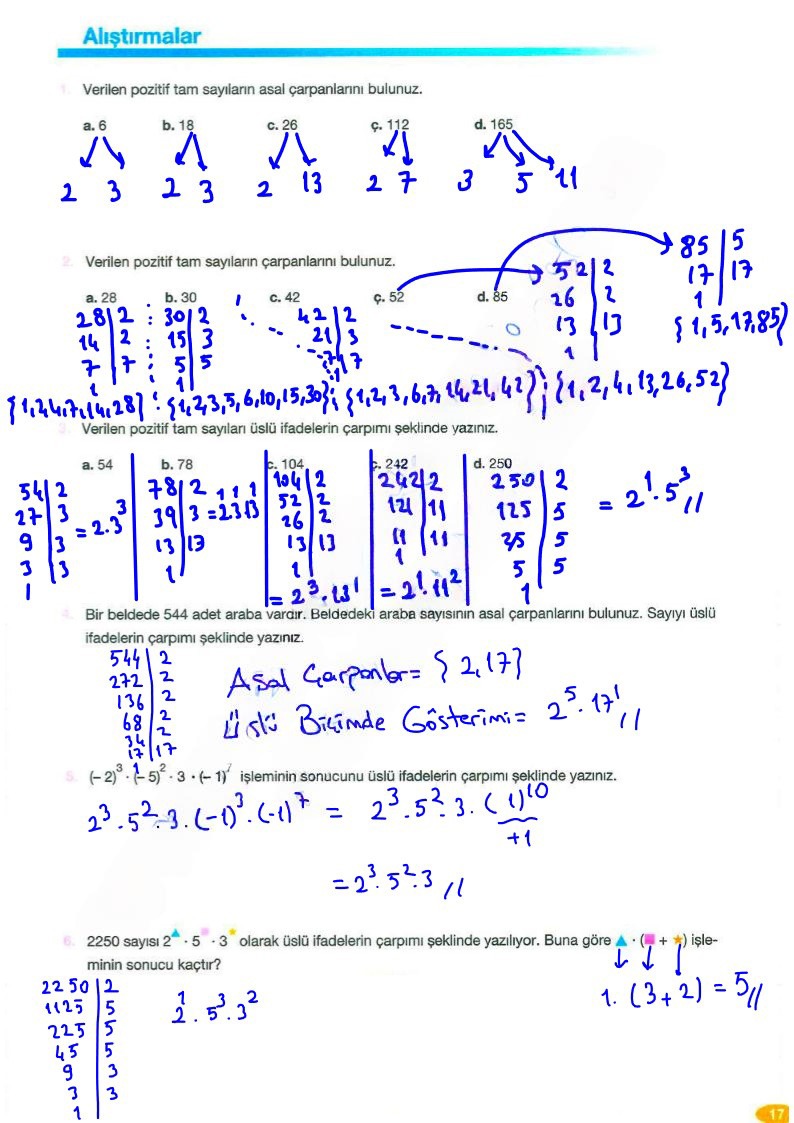 Alıştırmalar
1. Verilen pozitif tam sayıların asal çarpanlarını bulunuz.
a. 6 b. 18 c. 26 ç. 112 d. 165
2 3 2 3 2 13 2 7 3 5 11
2. Verilen pozitif tam sayıların çarpanlarını bulunuz.
a. 28 b. 30 c. 42 ç. 52 d. 85
28 2
14 2
7 7
1
30 2
15 3
5 5
1
42 2
21 3
7 7
1
52 2
26 2
13 13
1
85 5
17 17
1
{1, 5, 17, 85}
{1,2,4,7,14,28} {1,2,3,5,6,10,15,30} {1,2,3,6,7,14,21,42} {1,2,4,13,26,52}
3. Verilen pozitif tam sayıları üslü ifadelerin çarpımı şeklinde yazınız.
a. 54 b. 78 c. 104 ç. 242 d. 250
54 2
27 3
9 3
3 3
1
= 2.3³
78 2
39 3
13 13
1
= 2¹3¹13¹
104 2
52 2
26 2
13 13
1
= 2³.13¹
242 2
121 11
11 11
1
= 2¹.11²
250 2
125 5
25 5
5 5
1
= 2¹.5³//
4. Bir beldede 544 adet araba vardır. Beldedeki araba sayısının asal çarpanlarını bulunuz. Sayıyı üslü
ifadelerin çarpımı şeklinde yazınız.
544 2
272 2
136 2
68 2
34 2
17 17
Asal Çarpanlar= {2,17}
Üslü Biçimde Gösterimi= 2⁵.17¹//
5. (– 2)³ · (– 5)² · 3 · (– 1)⁷ işleminin sonucunu üslü ifadelerin çarpımı şeklinde yazınız.
2³.5².3.(-1)³.(-1)⁷ = 2³.5².3.(-1)¹⁰
+1
= 2³.5².3 //
6. 2250 sayısı 2▲ · 5■ · 3★ olarak üslü ifadelerin çarpımı şeklinde yazılıyor. Buna göre ▲ · (■ + ★) işle-
minin sonucu kaçtır?
2250 2
1125 5
225 5
45 5
9 3
3 3
1
2¹.5³.3²
1.(3+2) = 5//
17